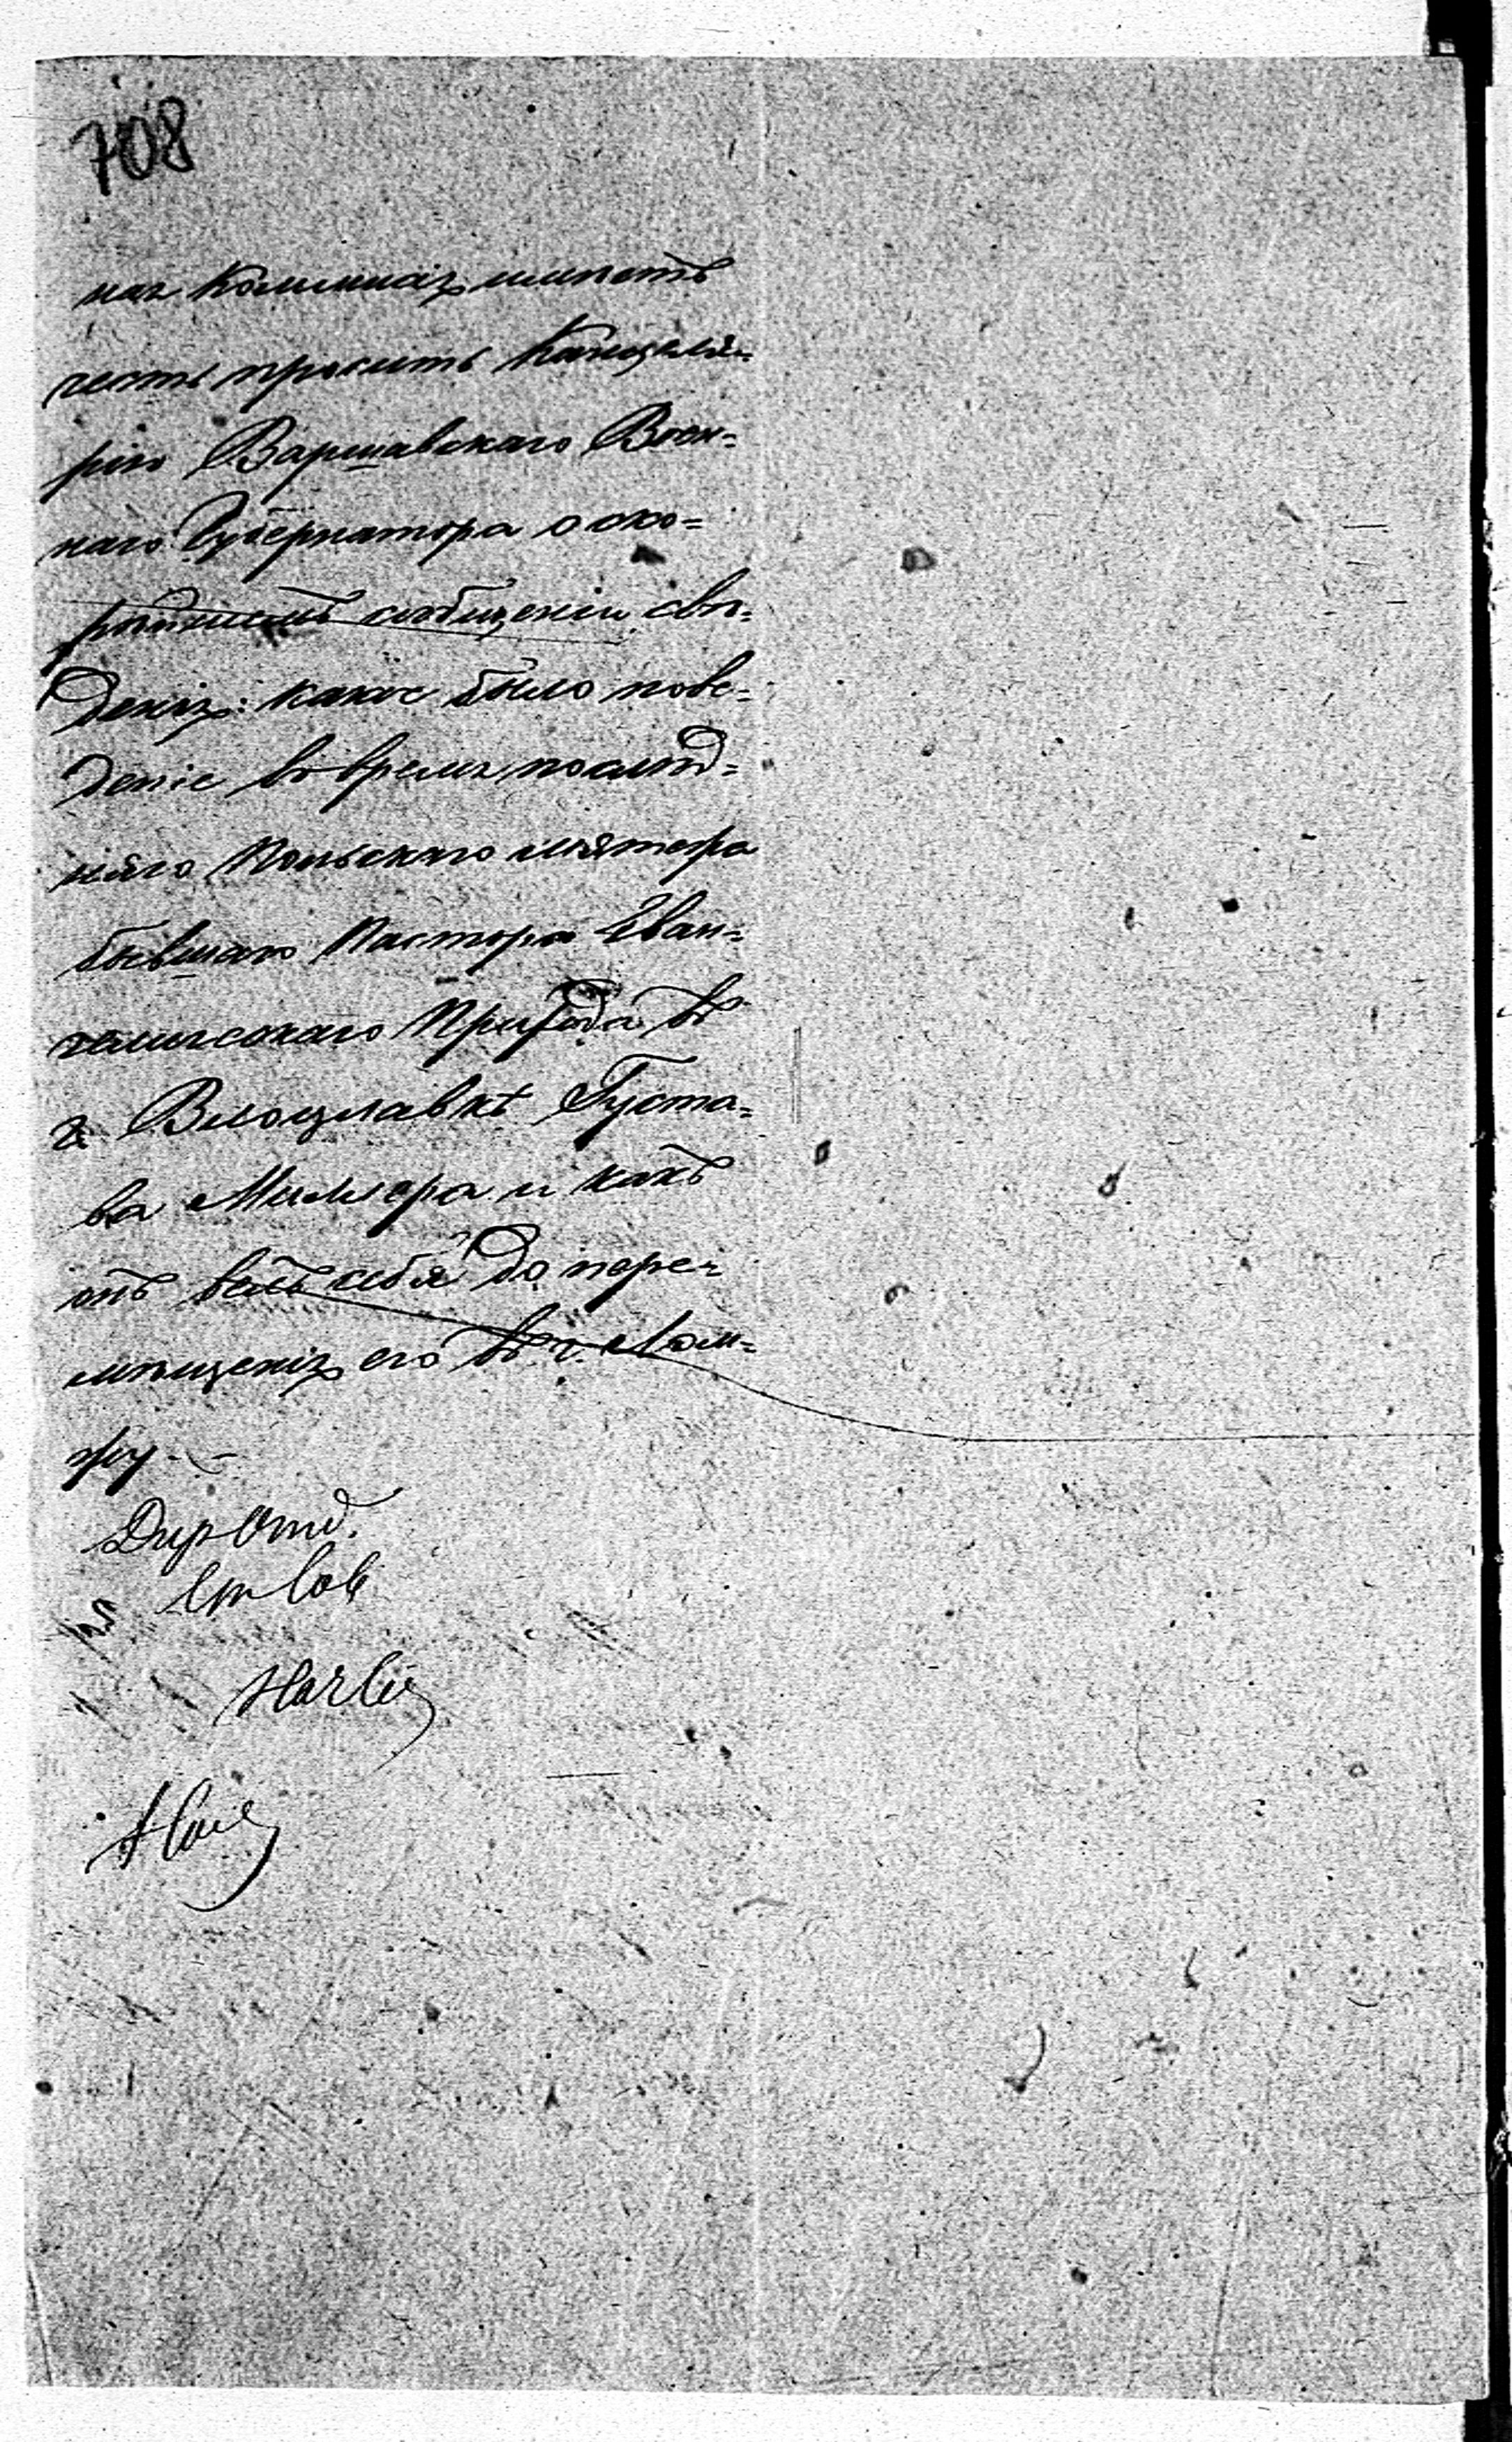 708
ная Коммисія имѣетъ
честь просить Канцеля-
рію Варшавскаго Воен=
наго Губернатора о ско=
рѣйшемъ сообщеніи свѣ=
деній: какое было пове=
деніе во время послѣд=
няго Польскаго мятежа
бывшаго Пастора Еван=
гелическаго Прихода въ
г. Влоцлавкѣ Густа=
ва Миллера и какъ
онъ велъ себя до пере=
мѣщенія его въ г. Лом=
жу.
Дир Отд.